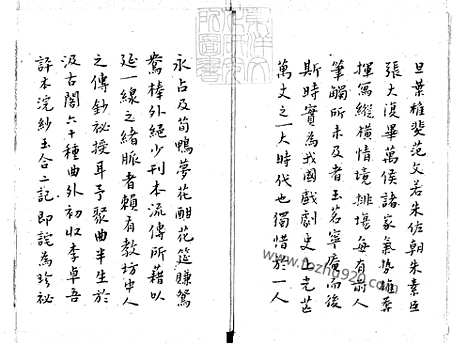 旦葉雄斐范文若朱佐朝朱素臣
張大復畢萬侯諸家氣勢雄莽
揮寫縱橫情境排場每有前人
筆觸所未及者玉茗寧庵而後
斯時實為我國戲劇史上光芒
萬丈之一大時代也獨惜於一人
永占及荀鴨夢花酣花筵賺鴛
鴦棒外絕少刊本流傳所藉以
延一線之緒脈者賴有教坊中人
之傳鈔祕授耳予聚曲半生於
汲古閣六十種曲外初收李卓吾
評本浣紗玉合二記即詫為珍祕